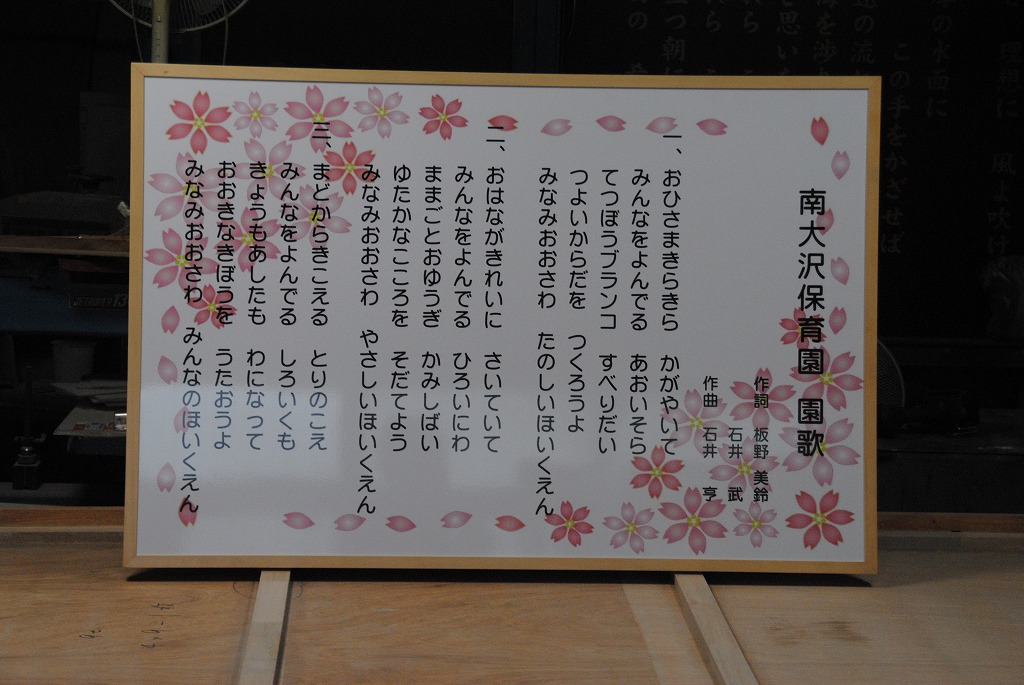 南大沢保育園 園歌
作詞 板野 美鈴
石井 武
作曲 石井 亨
一、おひさまきらきら かがやいて
みんなをよんでる あおいそら
てつぼうブランコ すべりだい
つよいからだを つくろうよ
みなみおおさわ たのしいほいくえん
二、おはながきれいに さいていて
みんなをよんでる ひろいにわ
ままごとおゆうぎ かみしばい
ゆたかなこころを そだてよう
みなみおおさわ やさしいほいくえん
三、まどからきこえる とりのこえ
みんなをよんでる しろいくも
きょうもあしたも わになって
おおきなきぼうを うたおうよ
みなみおおさわ みんなのほいくえん